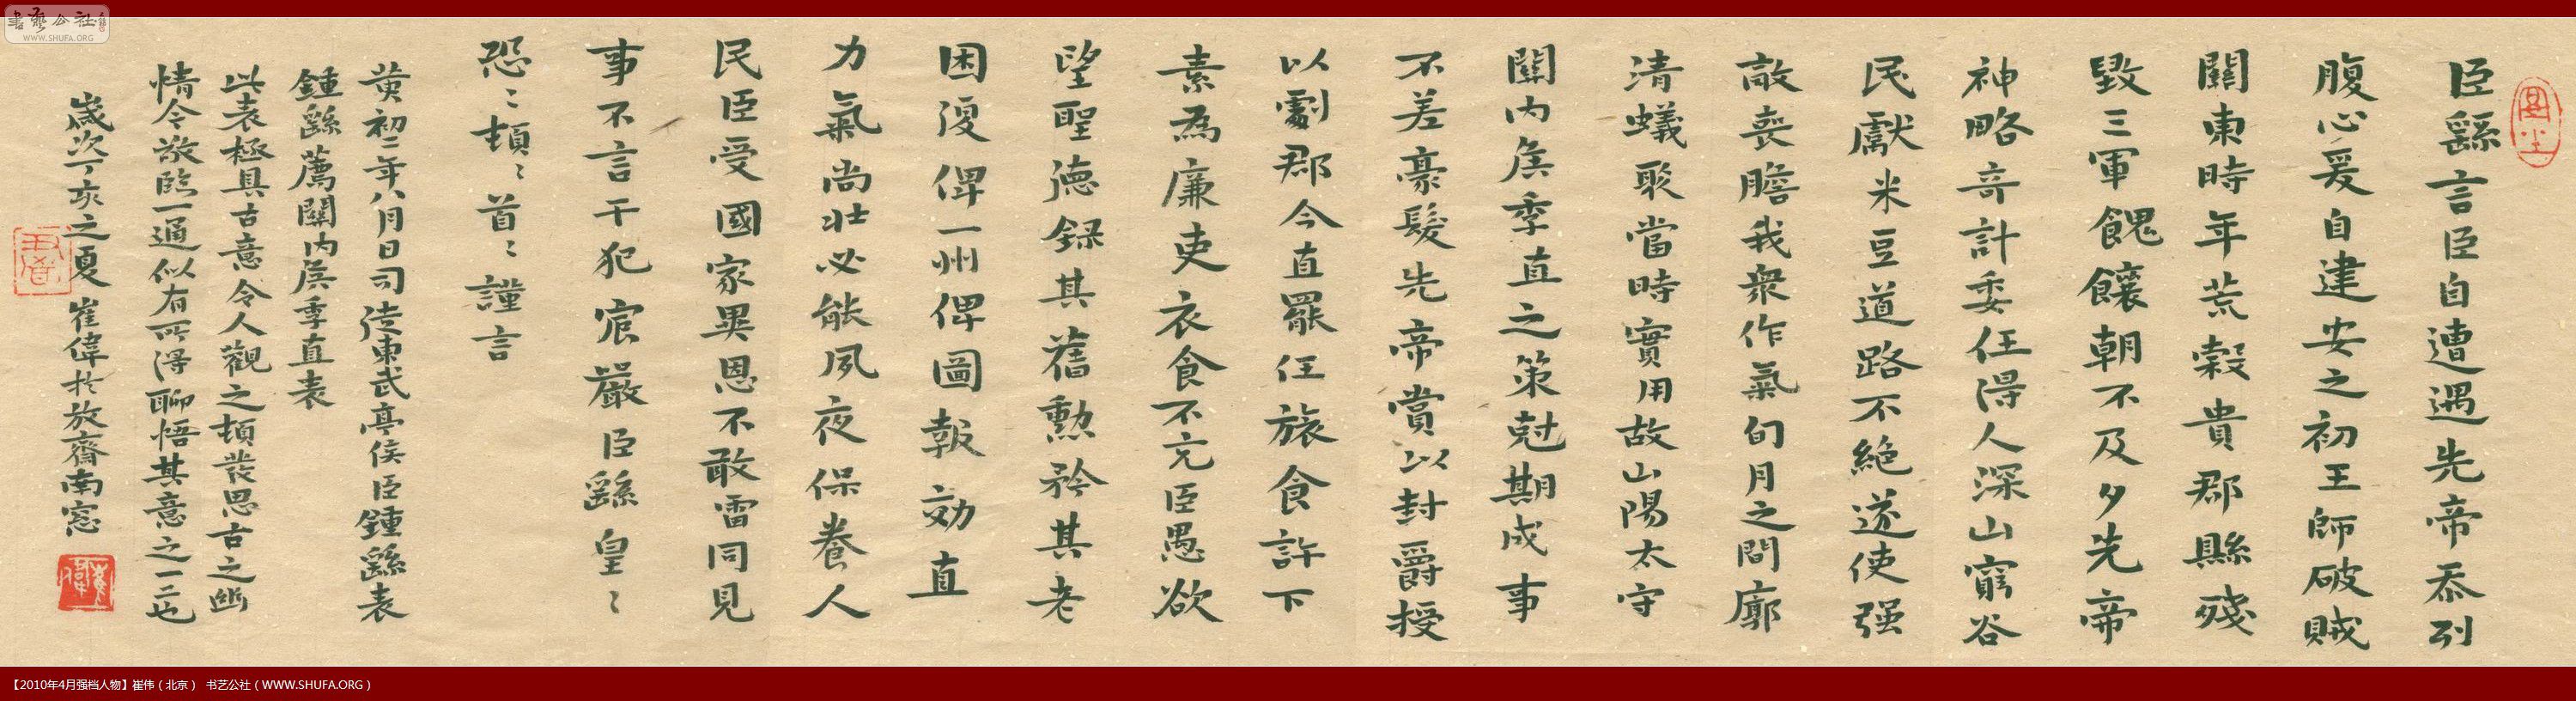 臣繇言臣自遭遇先帝忝列
腹心爰自建安之初王師破賊
關東時年荒穀貴郡縣殘
毀三軍餽饟朝不及夕先帝
神略奇計委任得人深山窮谷
民獻米豆道路不絕遂使强
敵喪膽我衆作氣旬月之間廓
清蟻聚當時實用故山陽太守
關內侯季直之策尅期成事
不差豪髮先帝賞以封爵授
以劇郡今直罷任旅食許下
素為廉吏衣食不充臣愚欲
望聖德錄其舊勳矜其老
困復俾一州俾圖報効直
力氣尚壯必能夙夜保養人
民臣受國家異恩不敢雷同見
事不言干犯宸嚴臣繇皇〻
恐〻頓〻首〻謹言
黃初二年八月日司徒東武亭侯臣鍾繇表
鍾繇薦關內侯季直表
此表極具古意令人觀之頓發思古之幽
情今敬臨一通似有所得聊悟其意之一二也
歲次丁亥之夏崔偉於放齋南窓
書藝公社
WWW.SHUFA.ORG
【2010年4月强档人物】崔伟（北京） 书艺公社（WWW.SHUFA.ORG）